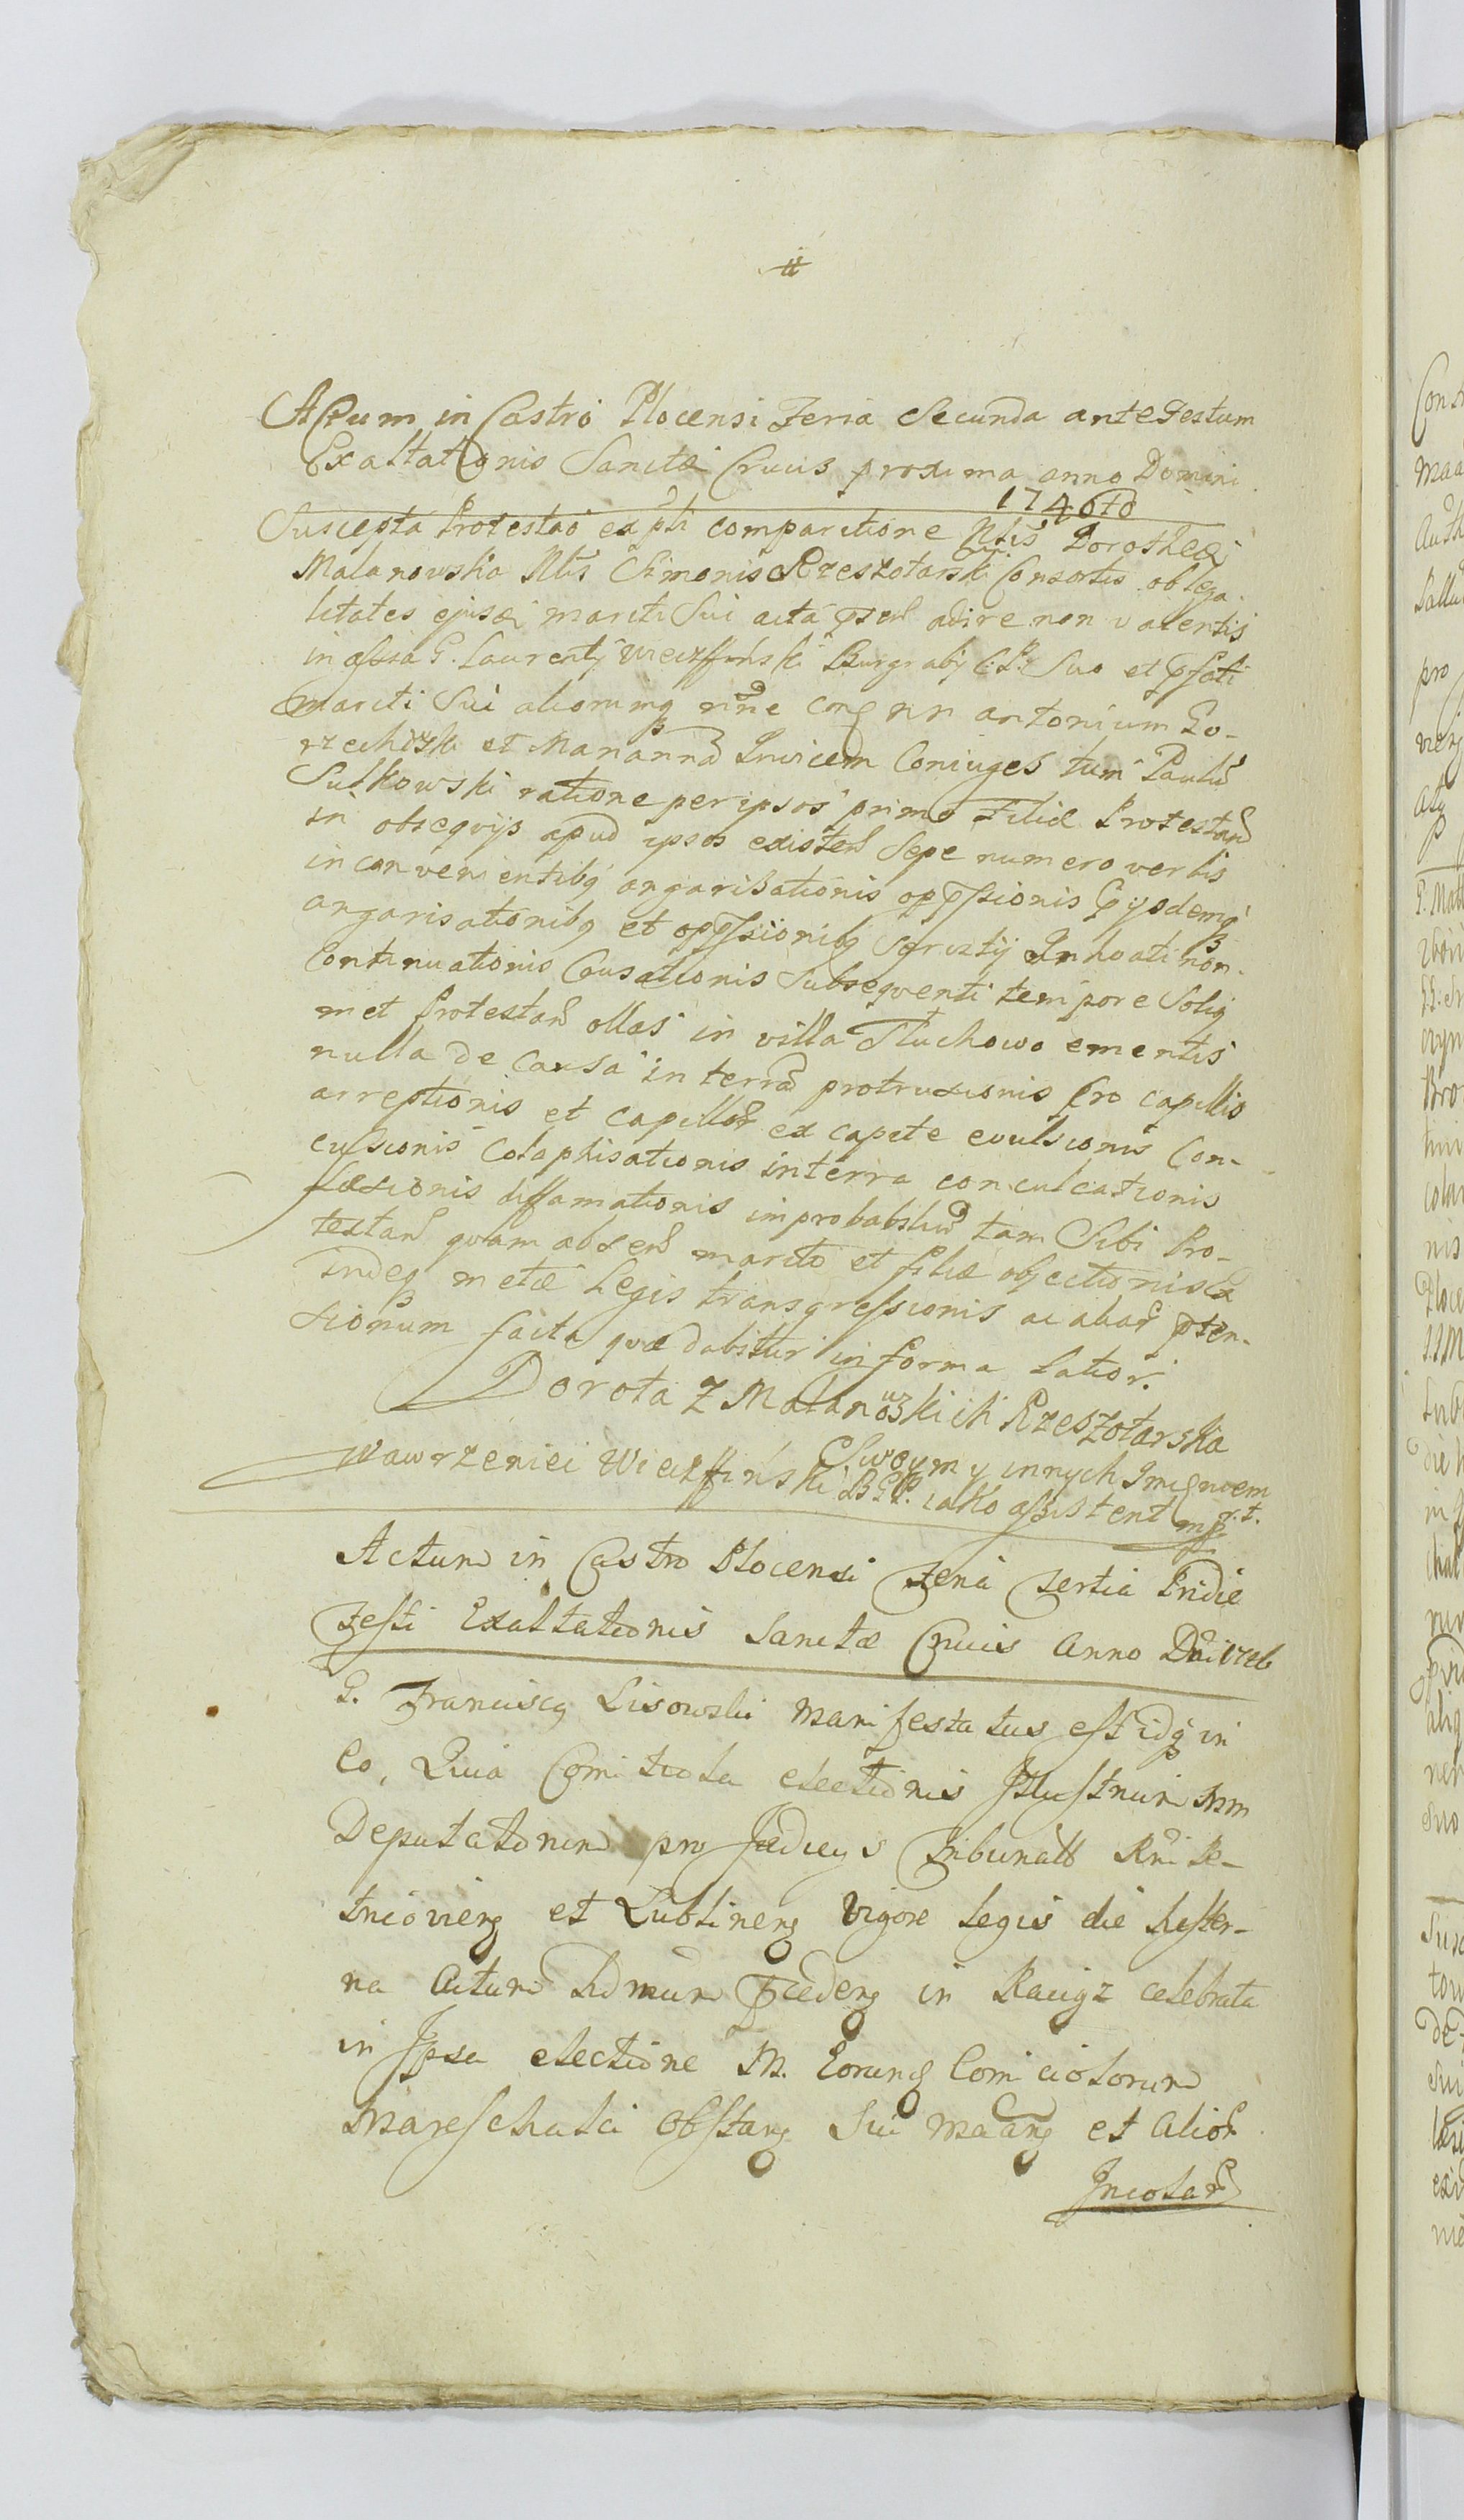 Actum in Castro Plocensi Feria Secunda ante Festum
Exaltationis Sanctæ Crucis proxima anno Domini
1746to
Suscepta Protestao ex psli comparitione Nlis Dorotheæ
Malanowska Nlis Simonis Rzeszotarski Consortis ob lega-
litates ejusd mariti Sui acta psen adire non valentis
in assa G. Laurentij Wiczffinski Burgrabij C. P. Suo et psati
mariti Sui aliorumq nne con NN antonium Go-
rzechizki et Mariannã Invicem Coniuges tum Paulũ
Sulkowski ratione per ipsos primo Filiæ Protestan
in obsequijs apud ipsos existen Sepe numero verbis
inconvenientibq angarisationis oppssionis Eijsdemq
angarisationibq et oppssionibq Servitij Inhoati non
Continuationis Causationis Subsequenti tempore Solig
met Protestan ollas in villa Tluchowo ementis
nulla de Causa in terrã protrusionis Pro capillis
arreptionis et capillor ex capite evulsionis Con-
cussionis Colaphisationis in terra conculcationis
læsionis diffamationis improbabiliũ tam Sibi Pro-
testan quam absen marito et filiæ objectionis Ex
Indeq metæ Legis transgressionis ac aliar pten-
sionum facta quæ dabitur in forma latior.
Dorota Z Malanowskich Rzeszotarska
Swoym y innych Imieniem
Wawrzeniec Wiczffinski B G P. iako assistent mp
Actum in Castro Plocensi Feria Tertia Pridie
Festi Exaltationis Sanctæ Crucis Anno Dni 1746
G. Franciscq Lisowski Manifestatus est idq in
Eo, Quia Comitiola electionis Illustrium MM
Deputatorum pro Judicijs Tribunalb Rni Pe-
tricovieng et Lublineng Vigore Legis die hester-
na Actum Admun præceden in Raciąz celebrata
in Ipsa electione M. Eorund Comiciolorum
Mareschalci Obstang Sui et Alior
Incolar